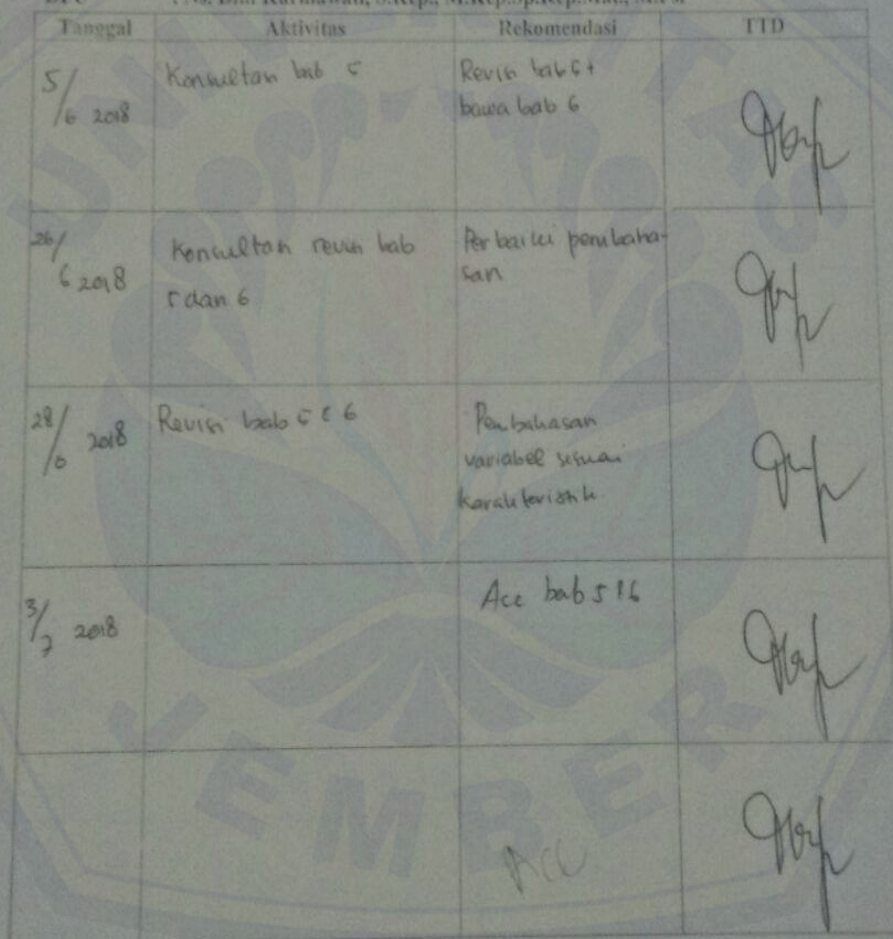 Tanggal Aktivitas Rekomendasi TTD
5/6 2018 Konsultan bab 5 Revisi bab 5 +
bawa bab 6
26/6 2018 Konsultan revisi bab Perbaiki pembaha-
5 dan 6 san
28/6 2018 Revisi bab 5 & 6 Pembahasan
variabel sesuai
karakteristik
3/7 2018 Acc bab 5 & 6
Acc
UNIVERSITAS
JEMBER